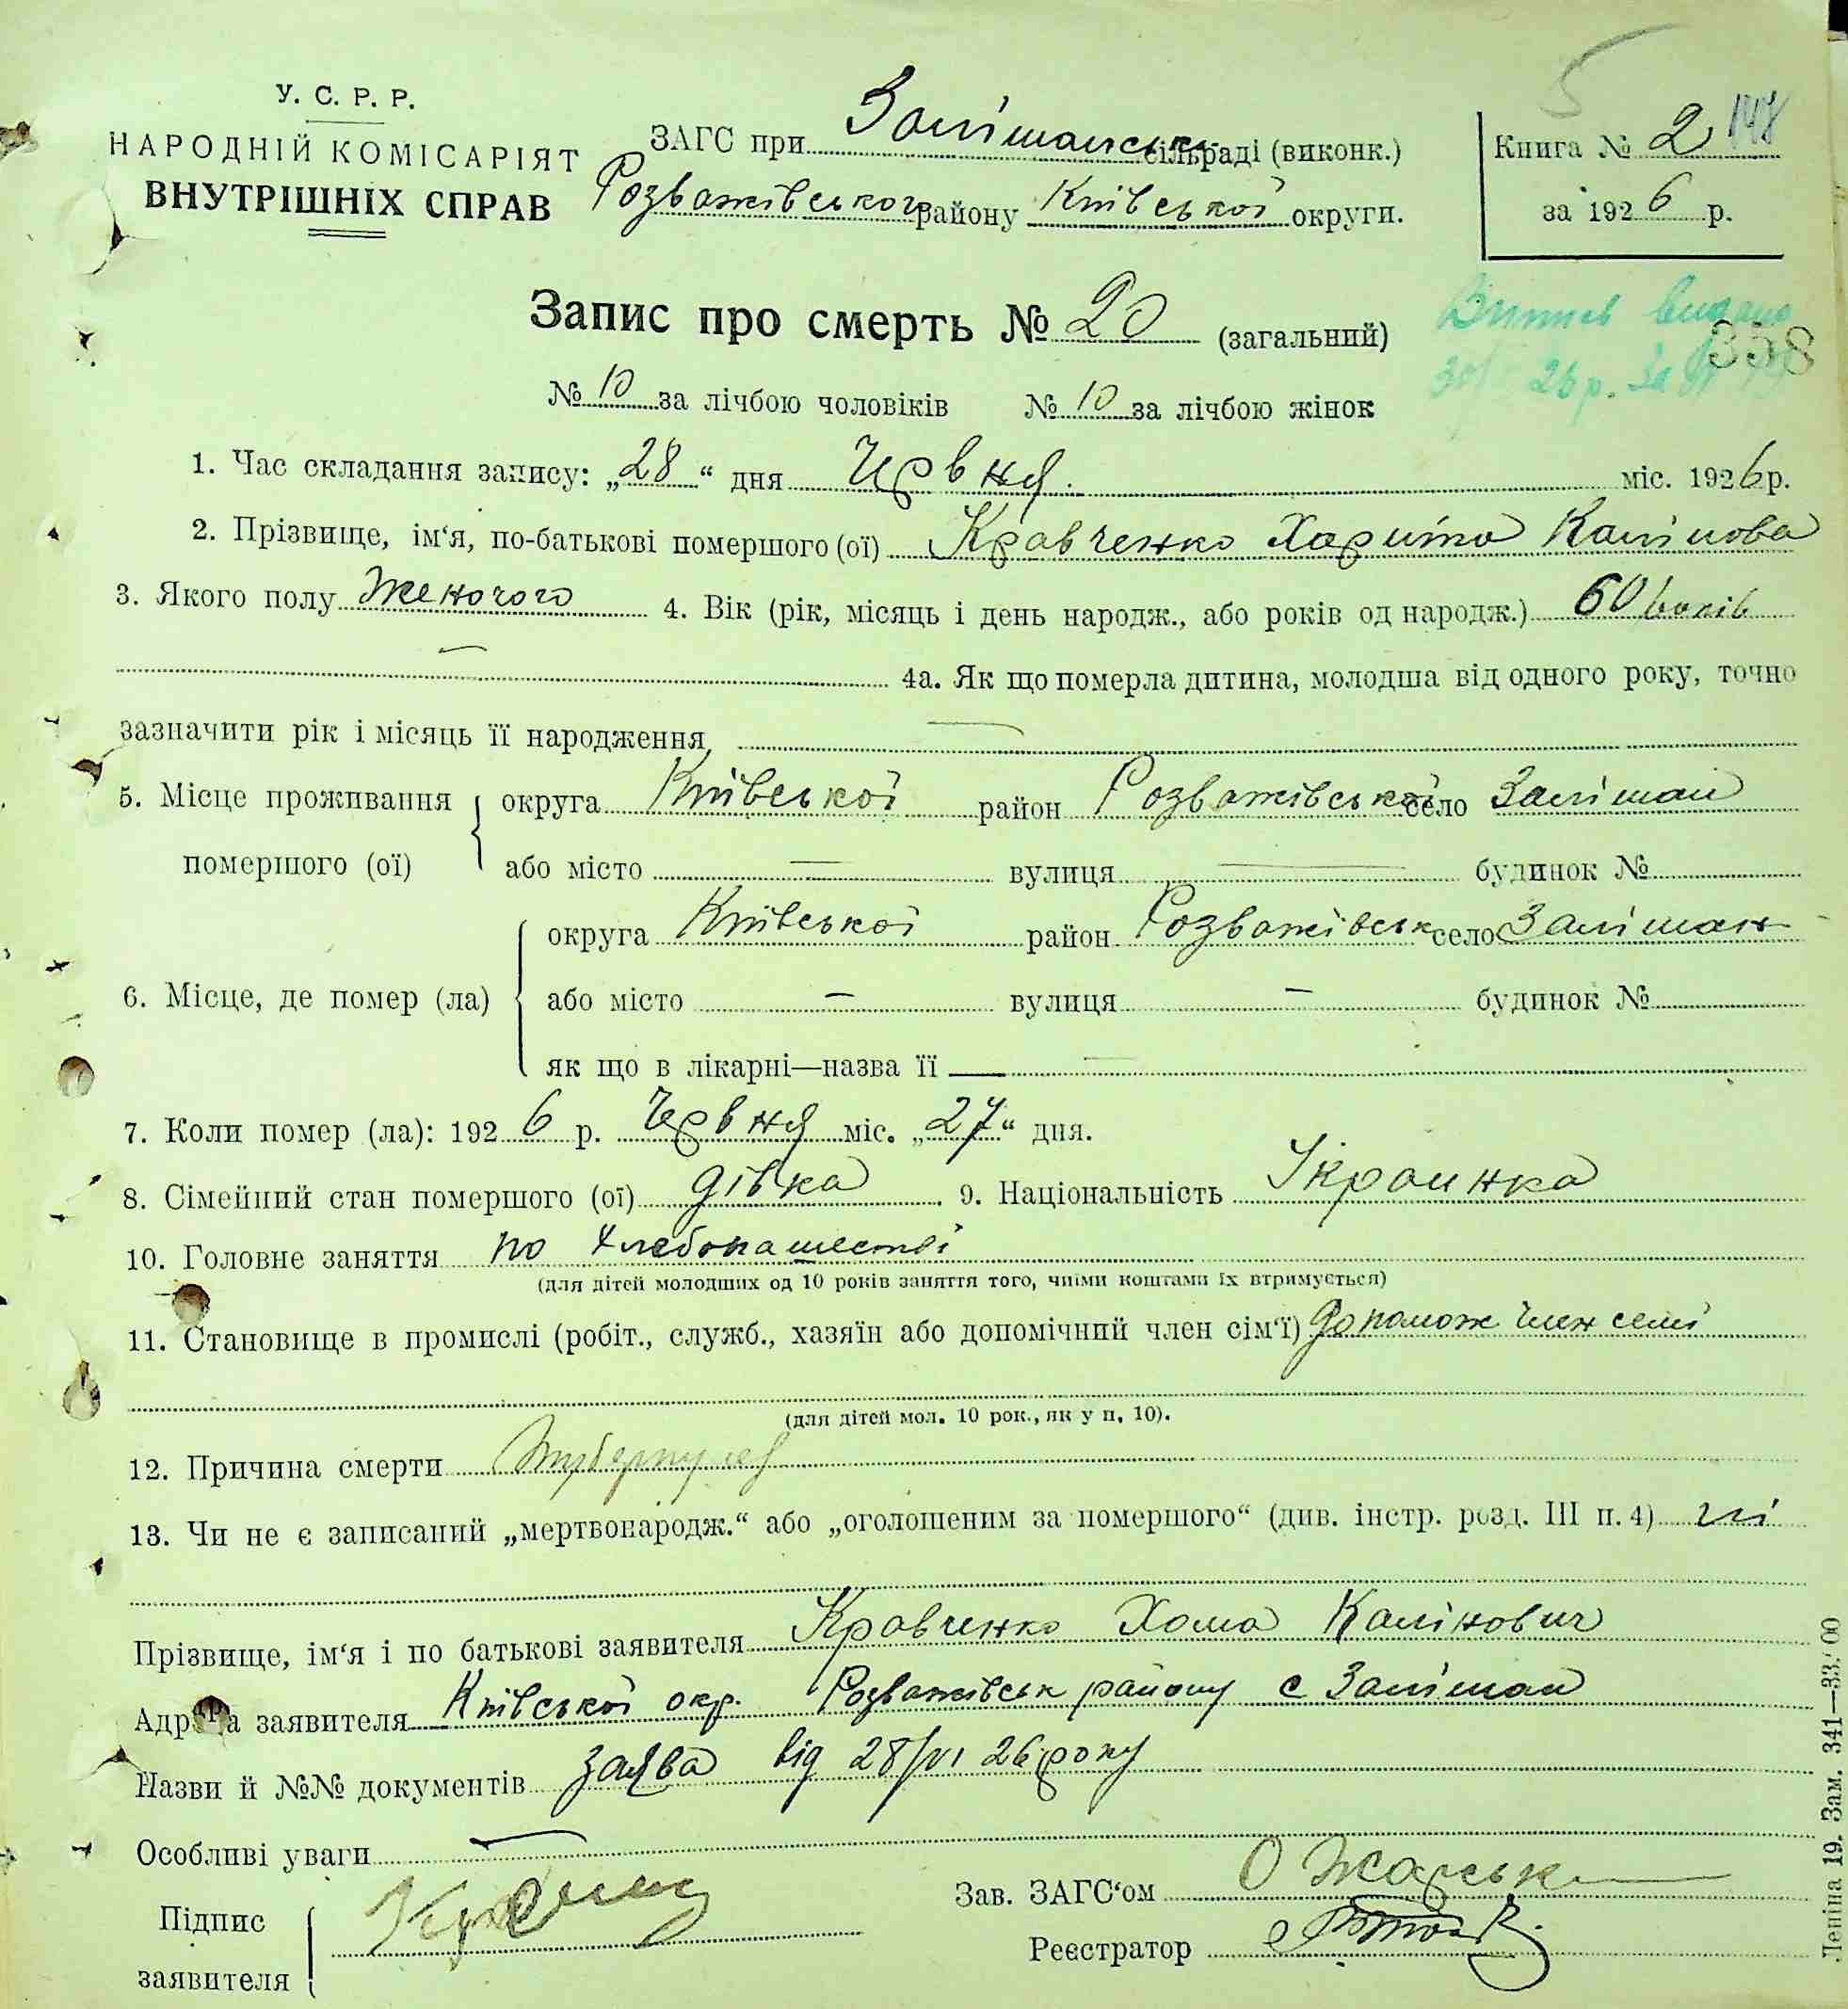 5
У. С. Р. Р.
НАРОДНІЙ КОМІСАРІЯТ
ВНУТРІШНІХ СПРАВ
ЗАГС при Залішанськ сільраді (виконк.)
Розважівського району Київської округи.
Книга № 2 148
за 1926 р.
Запис про смерть № 20 (загальний)
Витяг видано
338
26 р. За №
№ 10 за лічбою чоловіків № 10 за лічбою жінок
1. Час складання запису: „28“ дня Червня. міс. 1926 р.
2. Прізвище, ім‘я, по-батькові помершого (ої) Кравченко Харитина Калінова
3. Якого полу Женочого 4. Вік (рік, місяць і день народж., або років од народж.) 60 років
4а. Як що померла дитина, молодша від одного року, точно
зазначити рік і місяць її народження
5. Місце проживання помершого (ої) округа Київської район Розважівської село Залішан
або місто — вулиця — будинок №
6. Місце, де помер (ла) округа Київської район Розважівськ село Залішан
або місто — вулиця — будинок №
як що в лікарні—назва її —
7. Коли помер (ла): 1926 р. Червня міс. „27“ дня.
8. Сімейний стан помершого (ої) дівка 9. Національність Украинка
10. Головне заняття по хлебопашестві
(для дітей молодших од 10 років заняття того, чиїми коштами їх втримується)
11. Становище в промислі (робіт., служб., хазяїн або допомічний член сім‘ї) Допомож член семі
(для дітей мол. 10 рок., як у п. 10).
12. Причина смерти
13. Чи не є записаний „мертвонародж.“ або „оголошеним за помершого“ (див. інстр. розд. III п. 4) ні
Прізвище, ім‘я і по батькові заявителя Кравченко Хома Калінович
Адреса заявителя Київської окр. Розважівськ району с Залішан
Назви й №№ документів заява від 28/VI 26 року
Особливі уваги —
Підпис заявителя
Зав. ЗАГС‘ом О Жарськ
Реєстратор
Леніна 19. Зам. 341—33.000